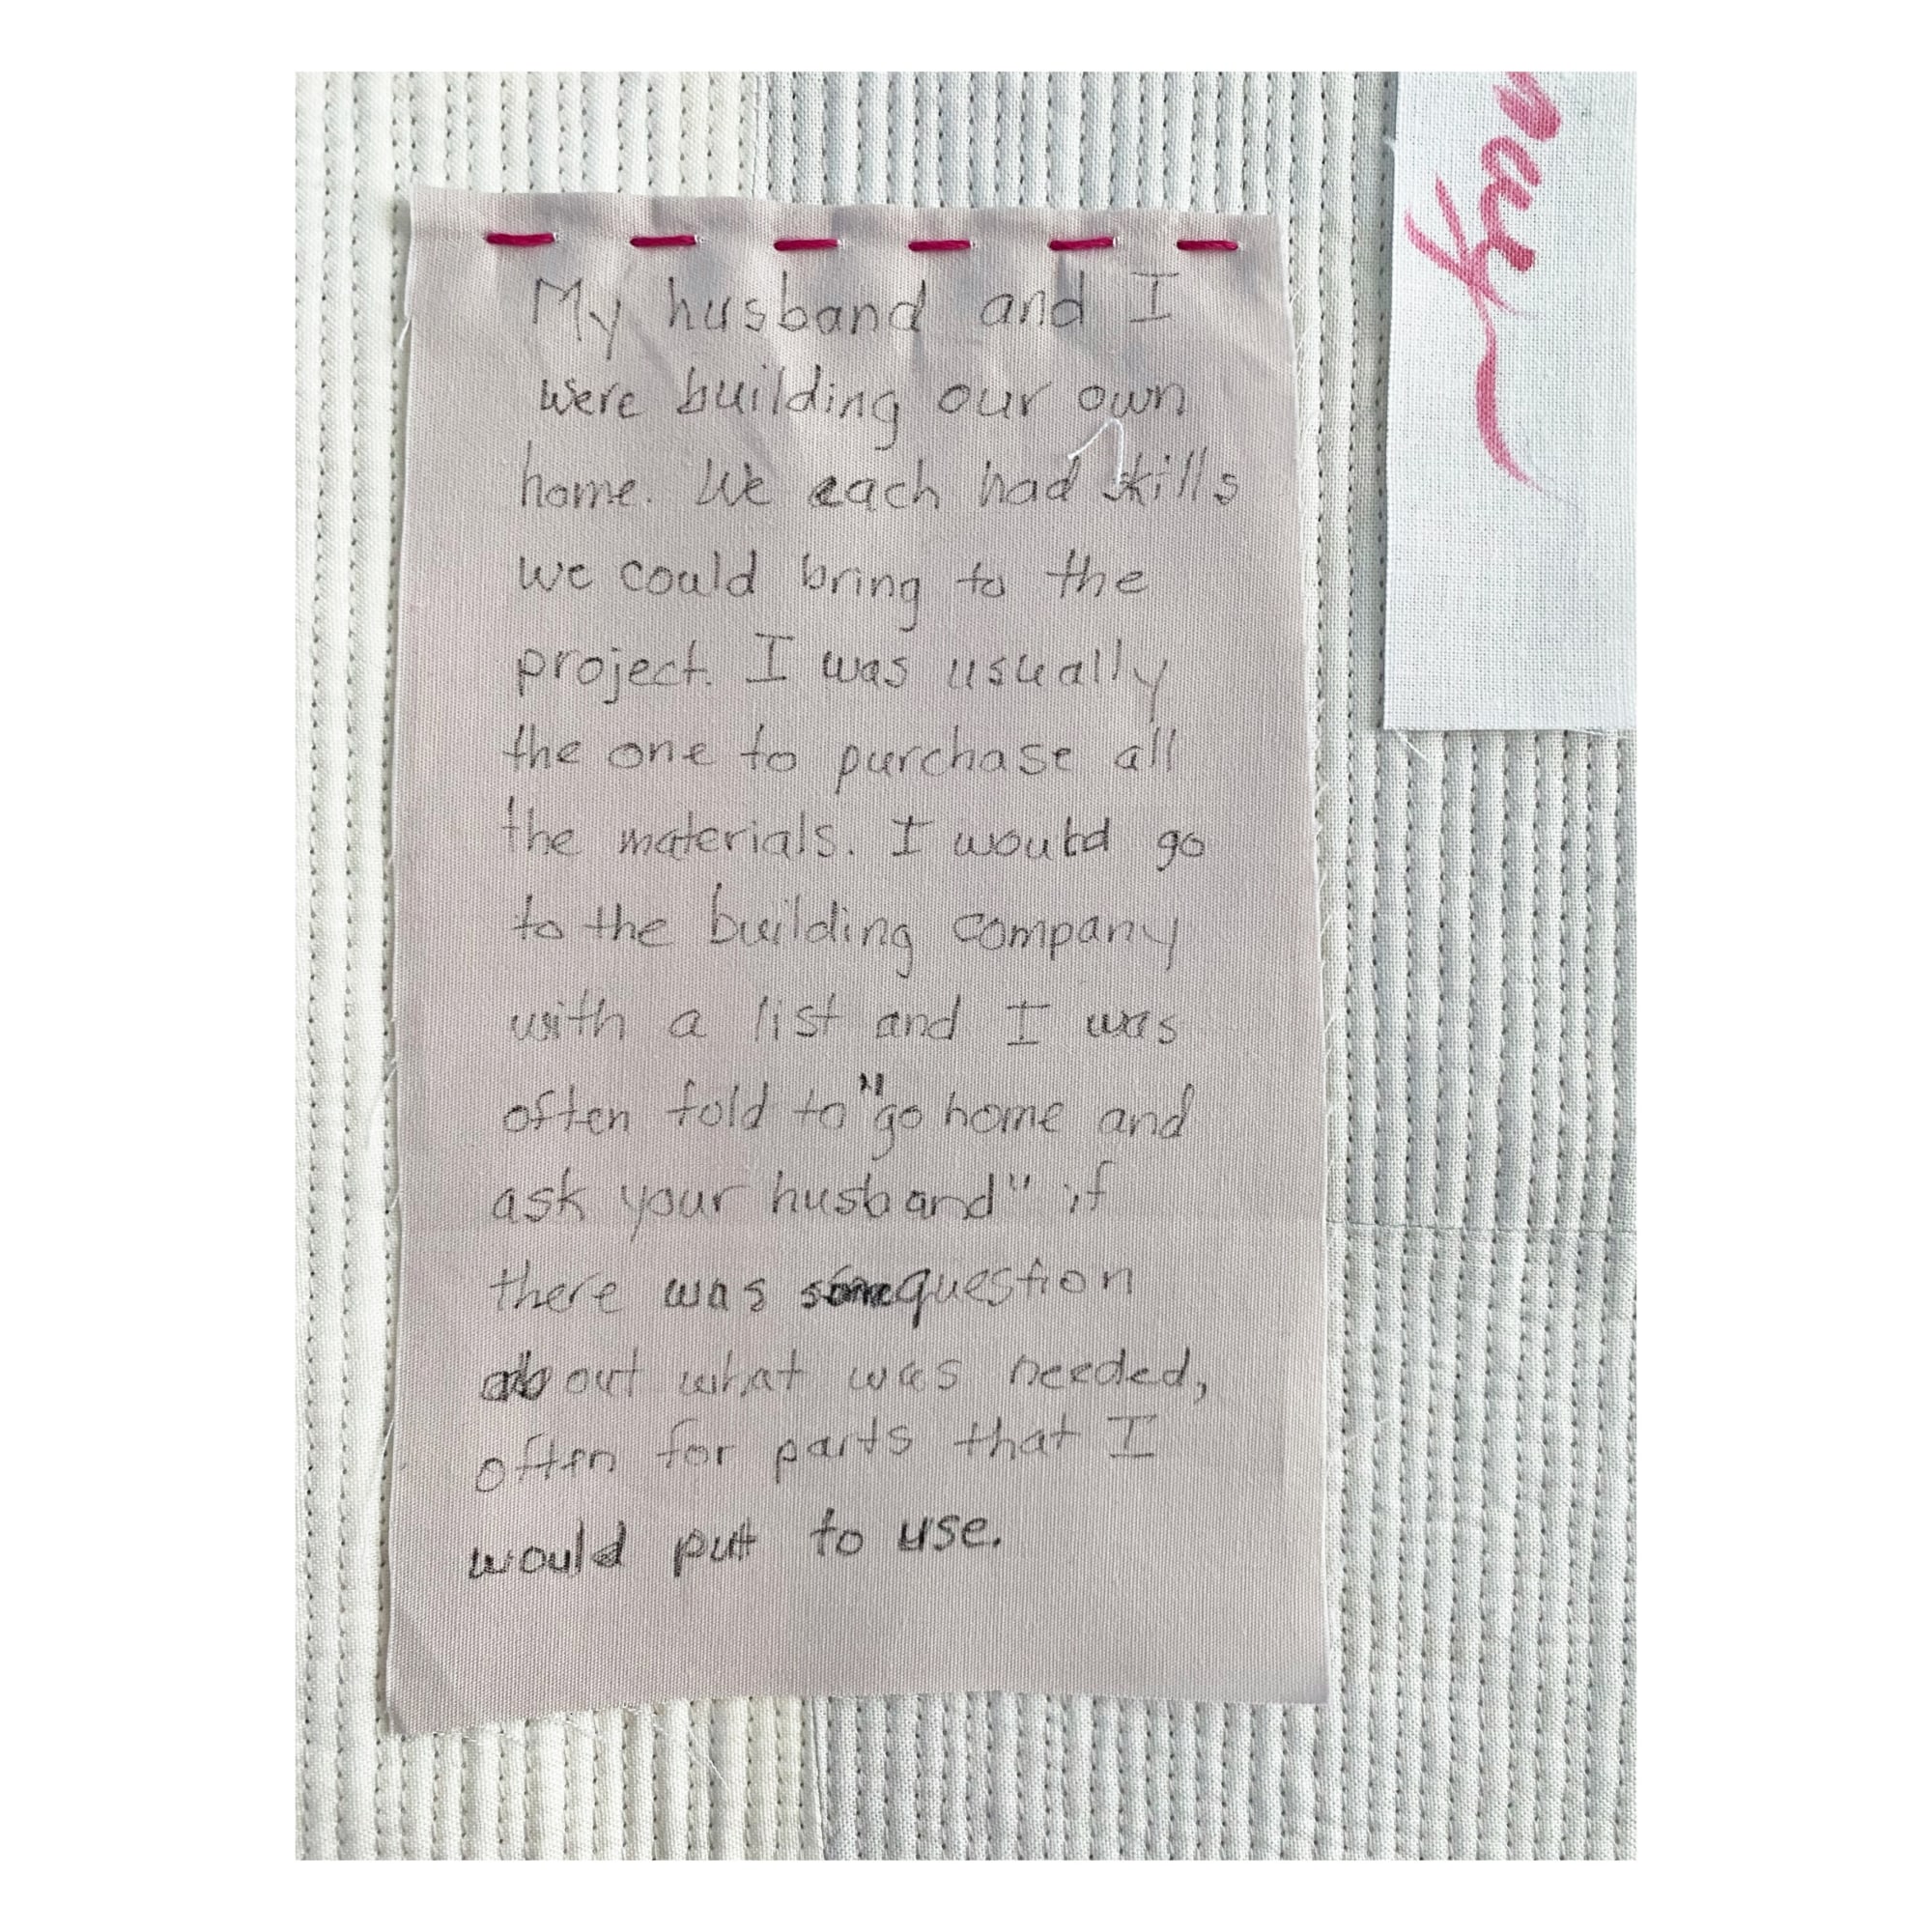 My husband and I
were building our own
home. We each had skills
we could bring to the
project. I was usually
the one to purchase all
the materials. I would go
to the building company
with a list and I was
often told to "go home and
ask your husband" if
there was some question
about what was needed,
often for parts that I
would put to use.